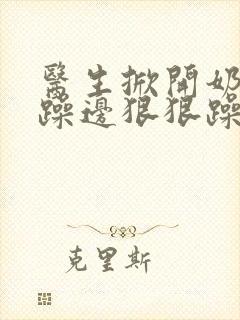 醫生掀開奶
躁邊狠狠躁
克里斯